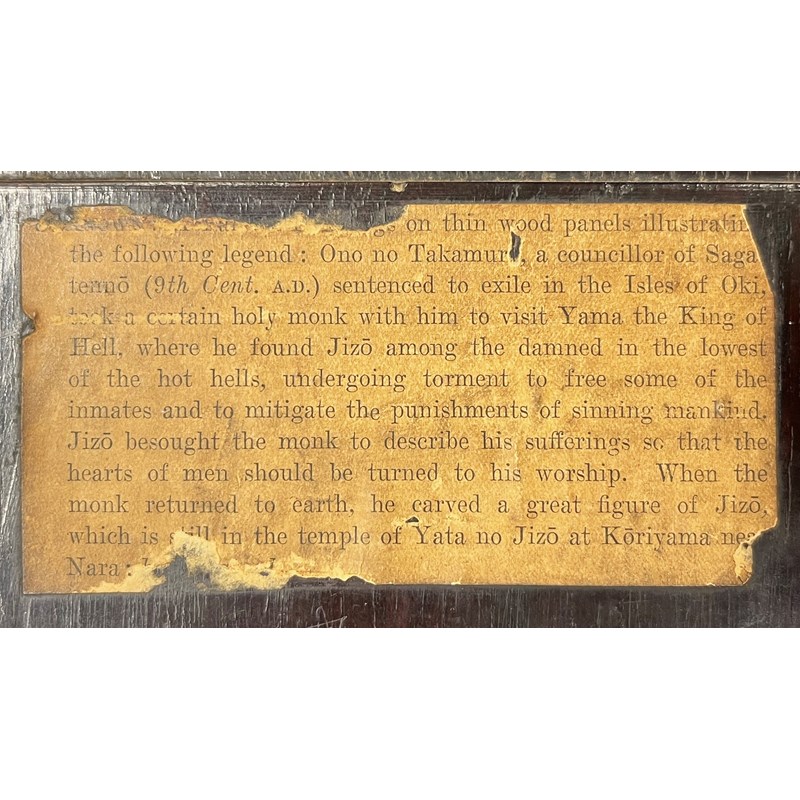 on thin wood panels illustratin
the following legend : Ono no Takamura, a councillor of Saga
tennō (9th Cent. A.D.) sentenced to exile in the Isles of Oki,
took a certain holy monk with him to visit Yama the King of
Hell, where he found Jizō among the damned in the lowest
of the hot hells, undergoing torment to free some of the
inmates and to mitigate the punishments of sinning mankind.
Jizō besought the monk to describe his sufferings so that the
hearts of men should be turned to his worship. When the
monk returned to earth, he carved a great figure of Jizō,
which is still in the temple of Yata no Jizō at Kōriyama near
Nara :